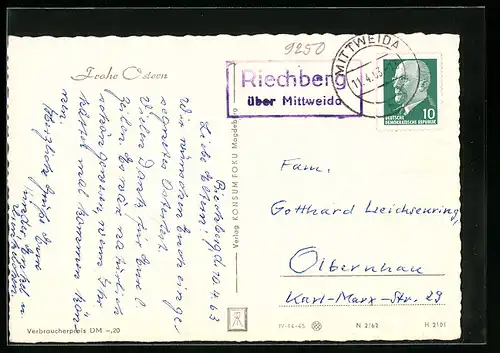 9250
Frohe Ostern
Riechberg
über Mittweida
MITTWEIDA
11.4.63
DEUTSCHE
DEMOKRATISCHE REPUBLIK
10
Riechberg d. 10.4.63
Liebe Eltern!
Wir wünschen Euch ein ge-
sundes Osterfest.
Vielen Dank für Eure l.
Zeilen. Es wäre natürlich
schön gewesen, wenn Ihr
hättet mal kommen kön-
nen.
Herzliche Grüße Eure
Kinder, Enkel u.
Verlag KONSUM FOKU Magdeburg
Fam.
Gotthard Leichsenring
Olbernhau
Karl-Marx-Str. 29
Verbraucherpreis DM -,20
IV-14-45
N 2/62
H 2101